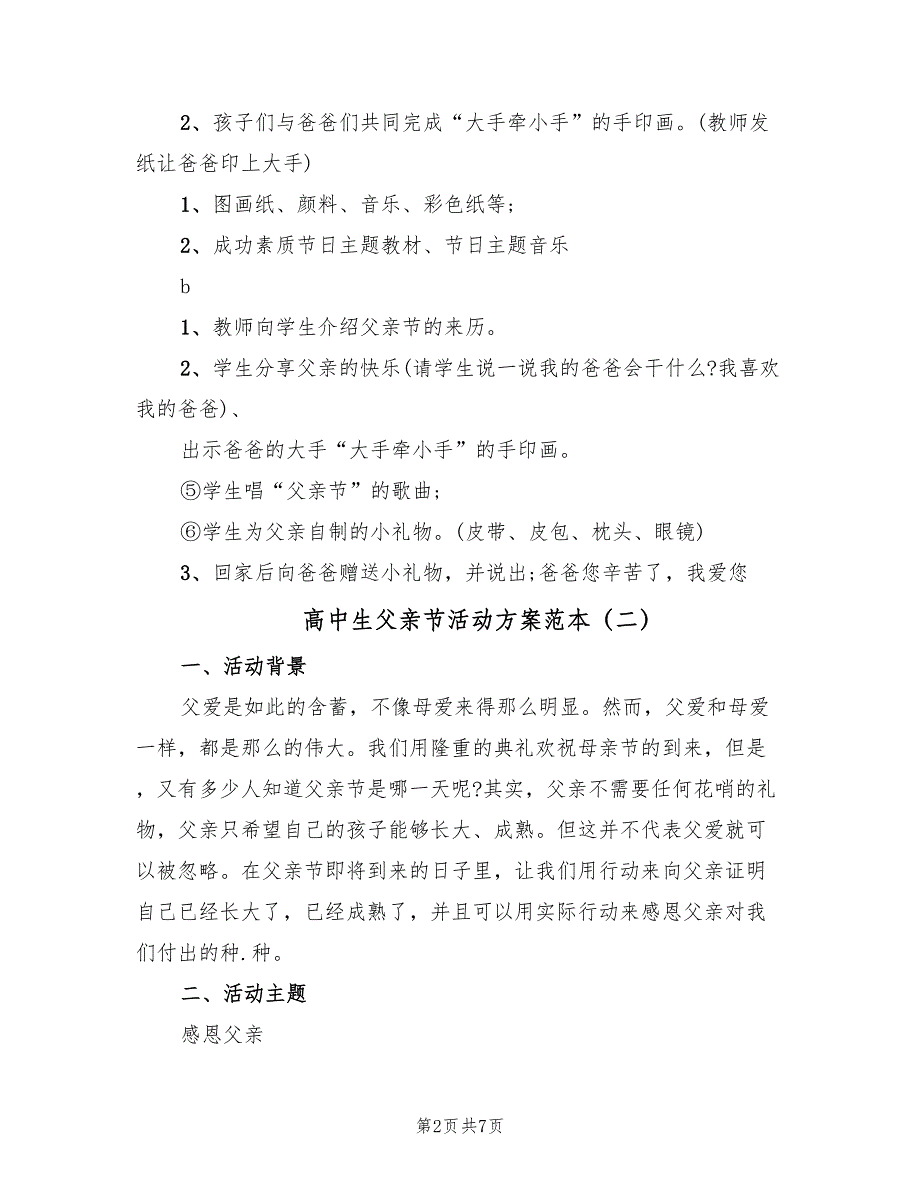 2、孩子们与爸爸们共同完成“大手牵小手”的手印画。(教师发
纸让爸爸印上大手)
1、图画纸、颜料、音乐、彩色纸等;
2、成功素质节日主题教材、节日主题音乐
b
1、教师向学生介绍父亲节的来历。
2、学生分享父亲的快乐(请学生说一说我的爸爸会干什么?我喜欢
我的爸爸)、
出示爸爸的大手“大手牵小手”的手印画。
⑤学生唱“父亲节”的歌曲;
⑥学生为父亲自制的小礼物。(皮带、皮包、枕头、眼镜)
3、回家后向爸爸赠送小礼物，并说出;爸爸您辛苦了，我爱您
高中生父亲节活动方案范本（二）
一、活动背景
父爱是如此的含蓄，不像母爱来得那么明显。然而，父爱和母爱
一样，都是那么的伟大。我们用隆重的典礼欢祝母亲节的到来，但是
，又有多少人知道父亲节是哪一天呢?其实，父亲不需要任何花哨的礼
物，父亲只希望自己的孩子能够长大、成熟。但这并不代表父爱就可
以被忽略。在父亲节即将到来的日子里，让我们用行动来向父亲证明
自己已经长大了，已经成熟了，并且可以用实际行动来感恩父亲对我
们付出的种.种。
二、活动主题
感恩父亲
第2页共7页